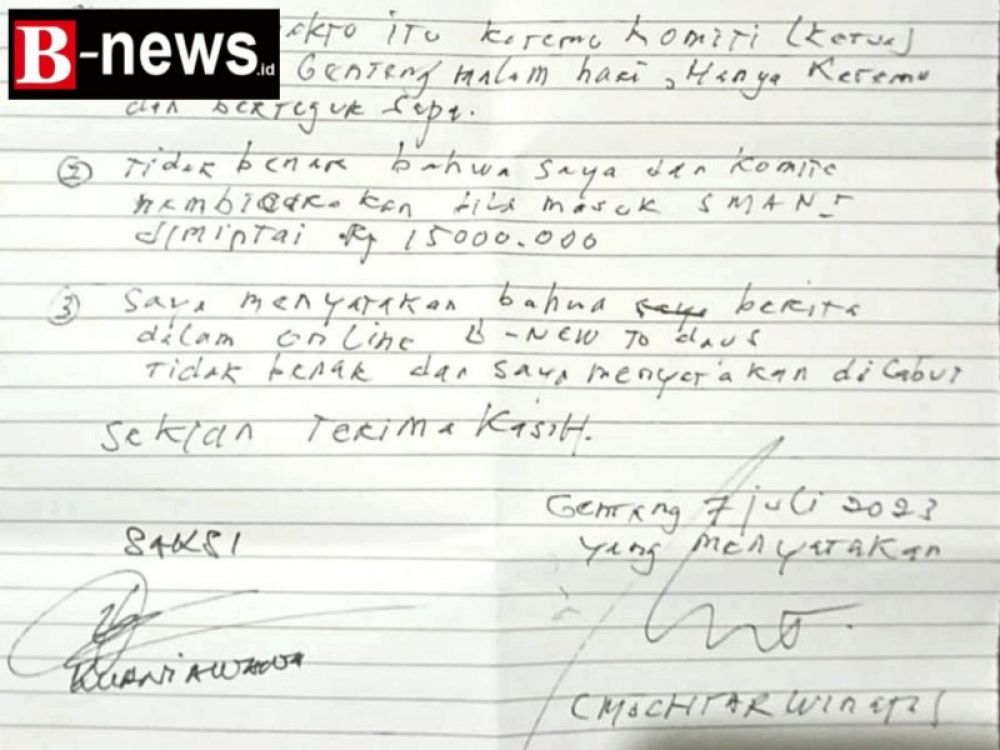 B-news.id
akto itu ketemu komiti (Ketua)
Genteng malam hari, Hanya Ketemu
dan berteguk sapa.
② Tidak benar bahwa saya dan komite
membicarakan bila masuk SMAN
dimintai Rp 15000.000
③ Saya menyatakan bahwa berita
dalam online B-NEW
Tidak benar dan saya menyatakan di Cabut
Sekian Terima Kasih.
Genteng 7 juli 2023
SAKSI
yang menyatakan
KURNIAWAN
(MOCHTAR